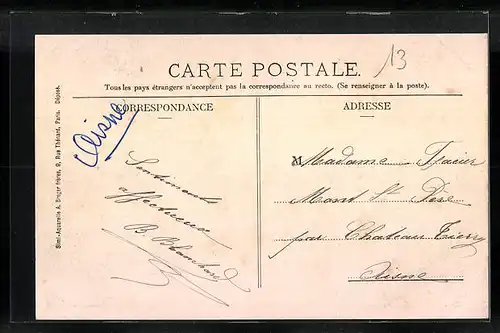 13
CARTE POSTALE.
Tous les pays étrangers n'acceptent pas la correspondance au recto. (Se renseigner à la poste).
CORRESPONDANCE
ADRESSE
Aisne
Sentiments
affectueux
B. Blanchard
Madame Tracier
Mont St Père
par Chateau Tierry
Aisne
Simi-Aquarelle A. Breger frères, 9, Rue Thénard, Paris. Déposé.